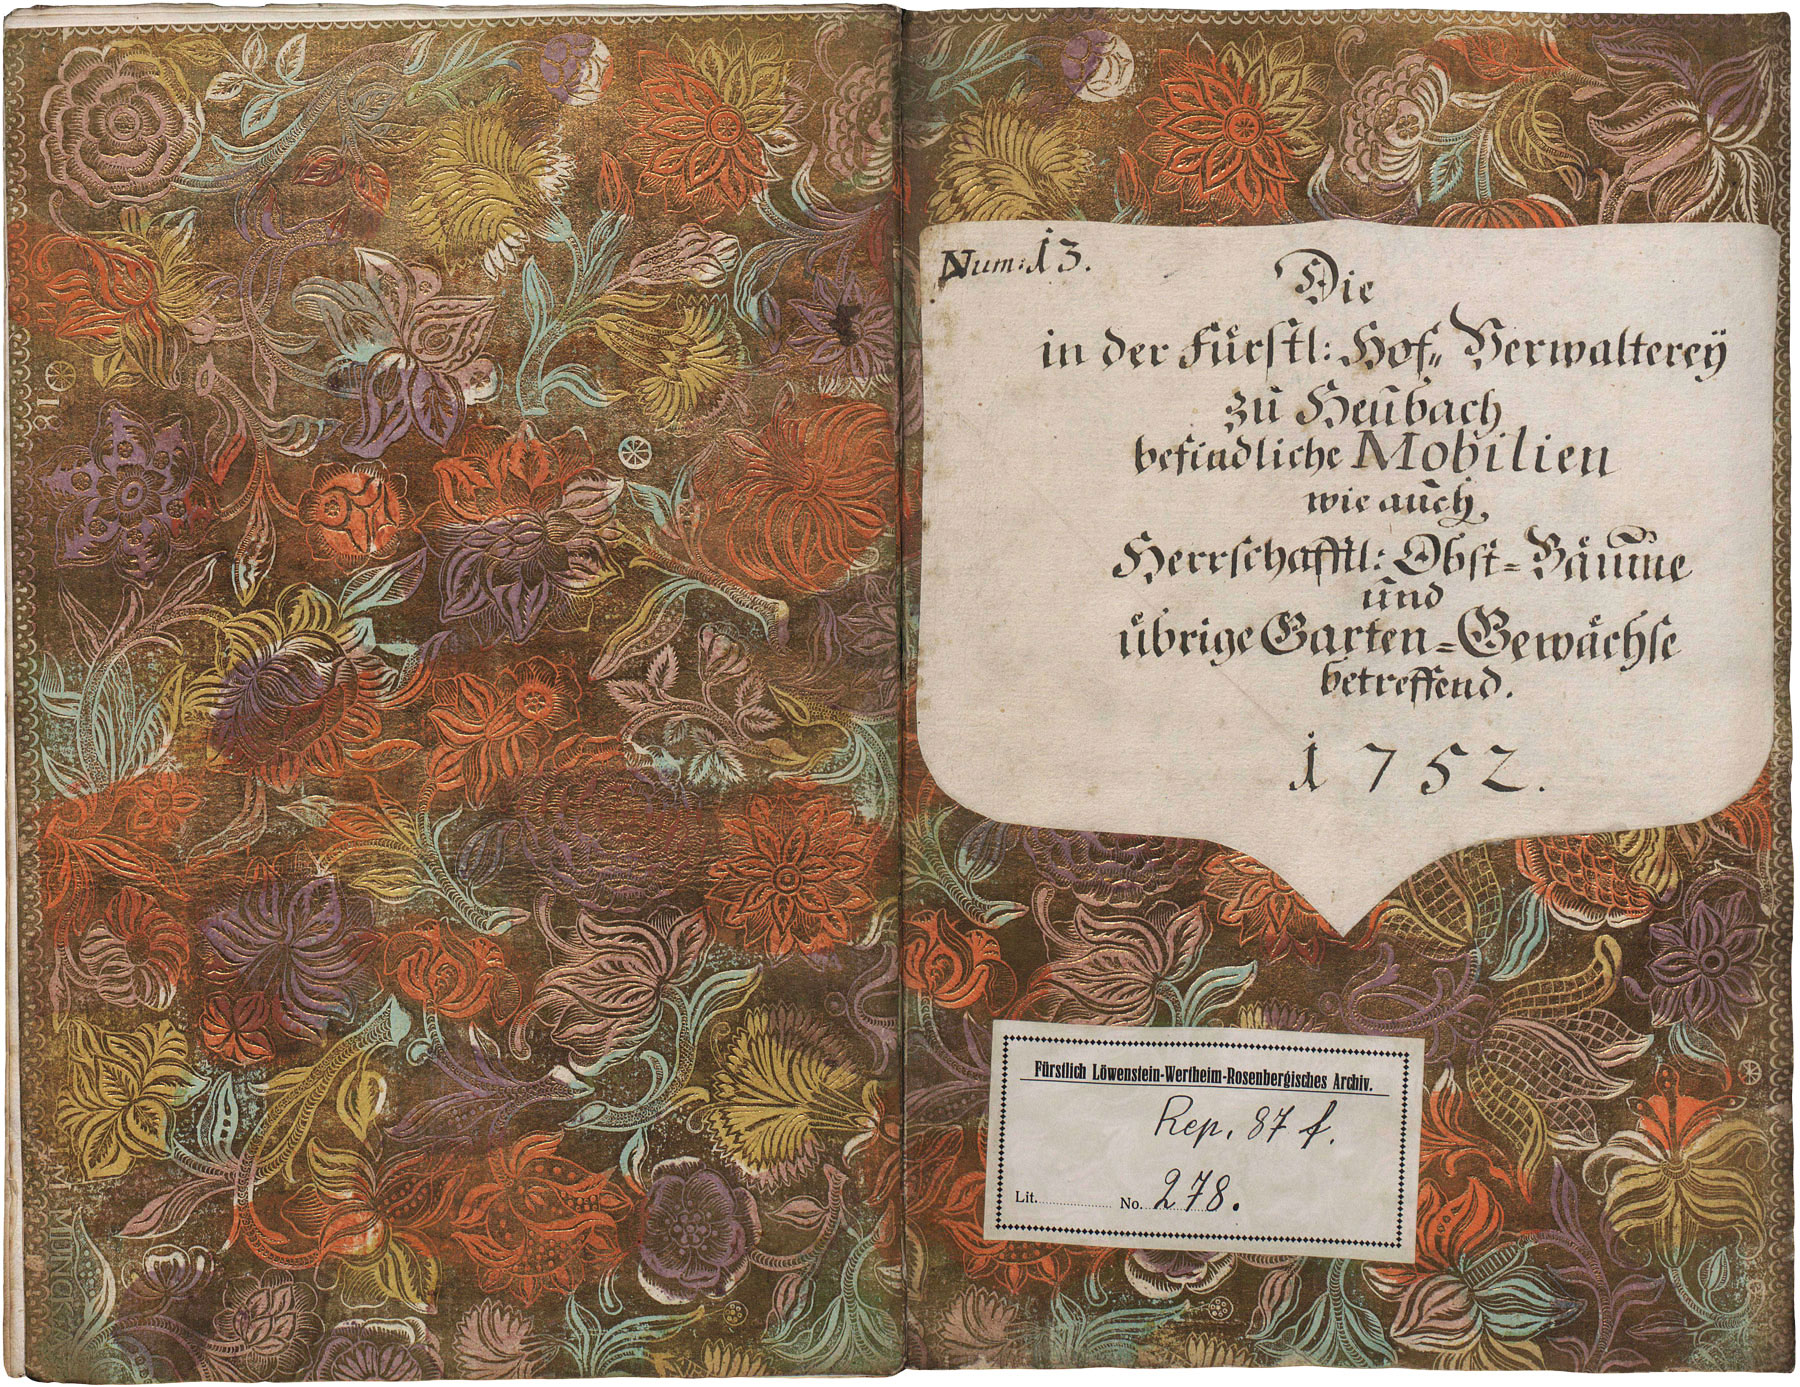 Num: 13.
Die
in der Fürstl: Hof„ Verwalterey
zu Heubach
befindliche Mobilien
wie auch,
Herrschafftl: Obst=Bäume
und
übrige Garten=Gewächse
betreffend.
1752.
Fürstlich Löwenstein-Wertheim-Rosenbergisches Archiv.
Rep. 87 f.
Lit. No. 278.